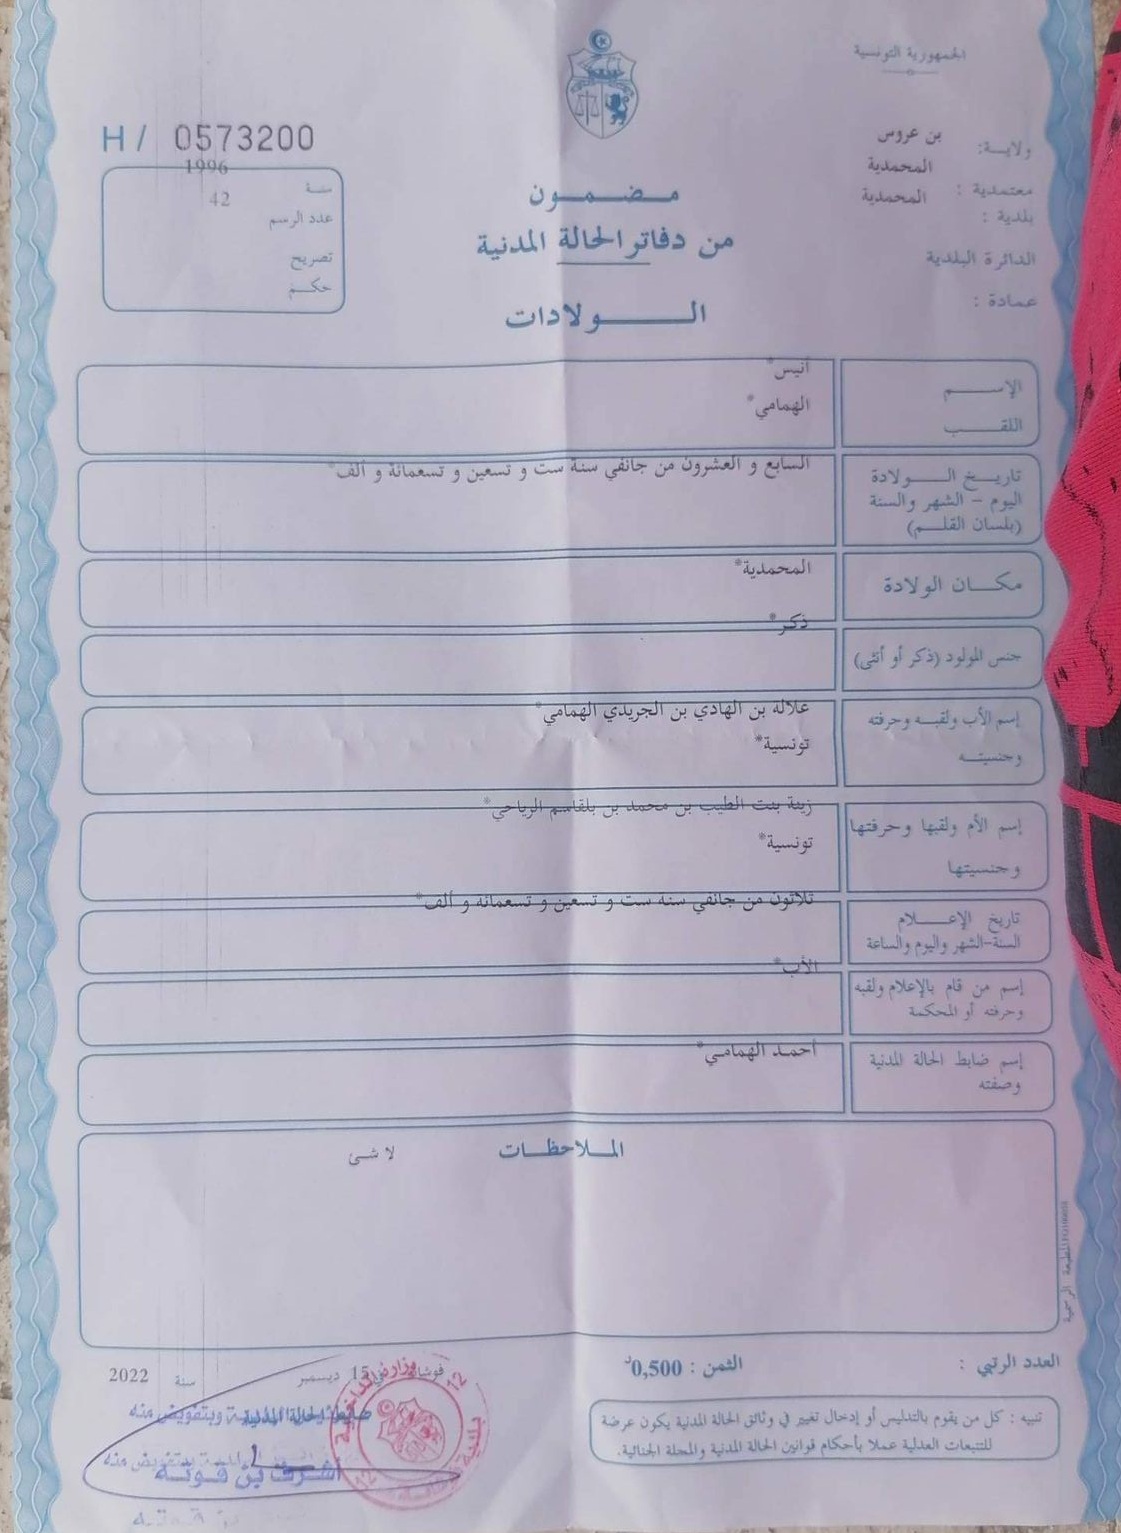 الجمهورية التونسية
ولاية: بن عروس
معتمدية : المحمدية
بلدية : المحمدية
الدائرة البلدية
عمادة :
H/ 0573200
سنة 1996
عدد الرسم 42
تصريح
حكم
مضمون
من دفاتر الحالة المدنية
الولادات
الإسم أنيس*
اللقب الهمامي*
تاريخ الولادة السابع و العشرون من جانفي سنة ست و تسعين و تسعمائة و ألف*
اليوم - الشهر والسنة
(بلسان القلم)
مكان الولادة المحمدية*
جنس المولود (ذكر أو أنثى) ذكر*
إسم الأب ولقبه وحرفته علاله بن الهادي بن الجريدي الهمامي*
وجنسيته تونسية*
إسم الأم ولقبها وحرفتها زينة بنت الطيب بن محمد بن بلقاسم الرياحي*
وجنسيتها تونسية*
تاريخ الإعلام ثلاثون من جانفي سنة ست و تسعين و تسعمائة و ألف*
السنة-الشهر واليوم والساعة
إسم من قام بالإعلام ولقبه الأب*
وحرفته أو المحكمة
إسم ضابط الحالة المدنية أحمد الهمامي*
وصفته
الملاحظات
لا شئ
المطبعة الرسمية
العدد الرتبي :
الثمن : 0,500د
في 15 ديسمبر سنة 2022
تنبيه : كل من يقوم بالتدليس أو إدخال تغيير في وثائق الحالة المدنية يكون عرضة
للتتبعات العدلية عملا بأحكام قوانين الحالة المدنية والمجلة الجنائية.
ضابط الحالة المدنية وبتفويض منه
أشرف بن